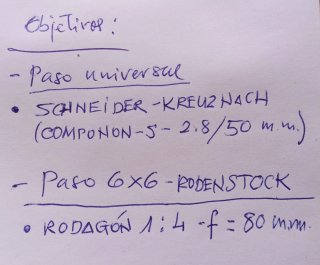 Objetivos:
- Paso universal
• SCHNEIDER-KREUZNACH
(COMPONON-S-2.8/50 m.m.)
- Paso 6x6-RODENSTOCK
• RODAGÓN 1:4 -f=80 m.m.